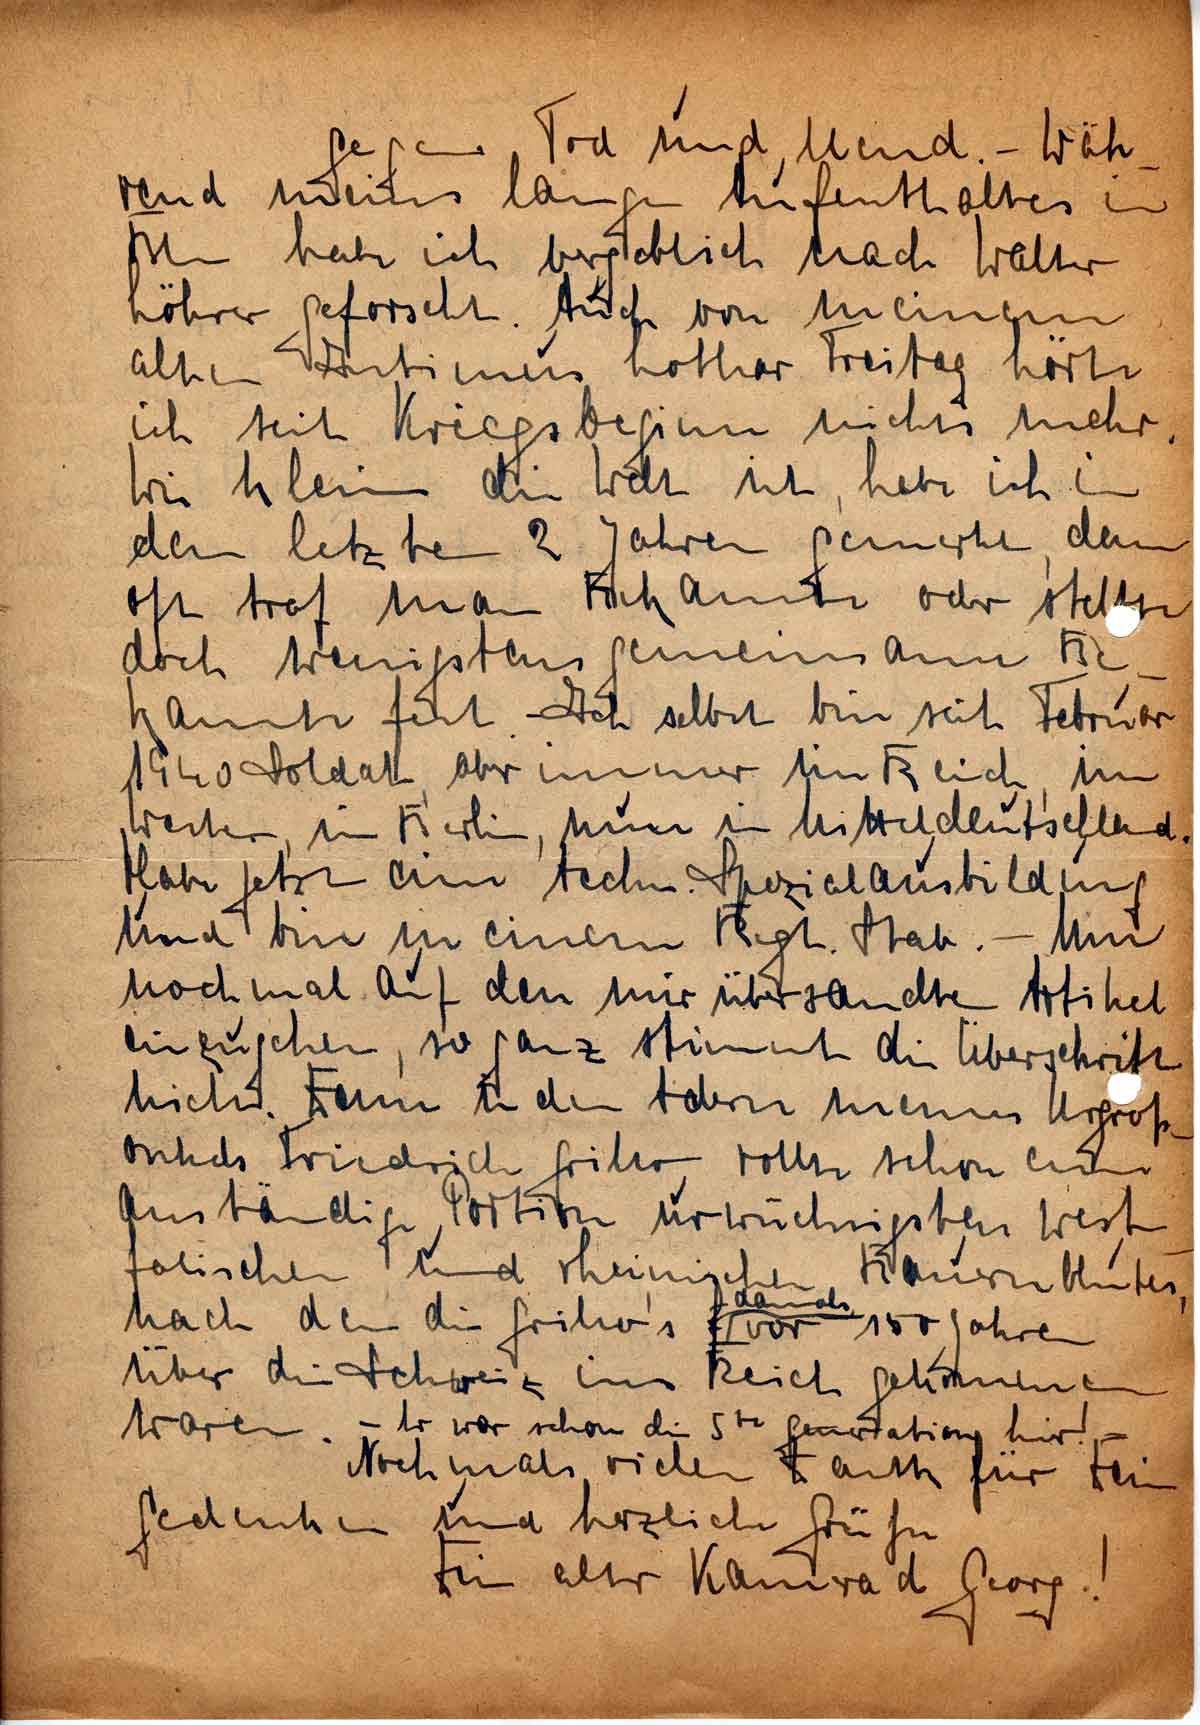 gegen Tod und Elend. – Wäh-
rend meines langen Aufenthaltes in
Köln habe ich vergeblich nach Walter
Köhrer geforscht. Auch von meinem
alten Intimus Lothar Freitag hörte
ich seit Kriegsbeginn nichts mehr.
Wie klein die Welt ist, habe ich in
den letzten 2 Jahren gemerkt, denn
oft traf man Bekannte oder stellte
doch wenigstens gemeinsame Be-
kannte fest. Ich selbst bin seit Februar
1940 Soldat, aber immer im Reich, im
Westen, in Berlin, nun in Mitteldeutschland.
Habe jetzt eine techn. Spezialausbildung
und bin in einem Regt. Stab. – Um
nochmal auf den mir übersandten Artikel
einzugehen, so ganz stimmt die Überschrift
nicht. Denn in den Adern meines Urgroß-
onkels Friedrich Grillo rollte schon eine
anständige Portion urwüchsigsten west-
falischen und rheinischen Bauernblutes,
nach dem die Grillo's damals vor 150 Jahren
über die Schweiz ins Reich gekommen
waren. – Er war schon die 5te Generation hier! –
Nochmals vielen Dank für Dein
Gedenken und herzliche Grüße
Dein alter Kamerad Georg.!